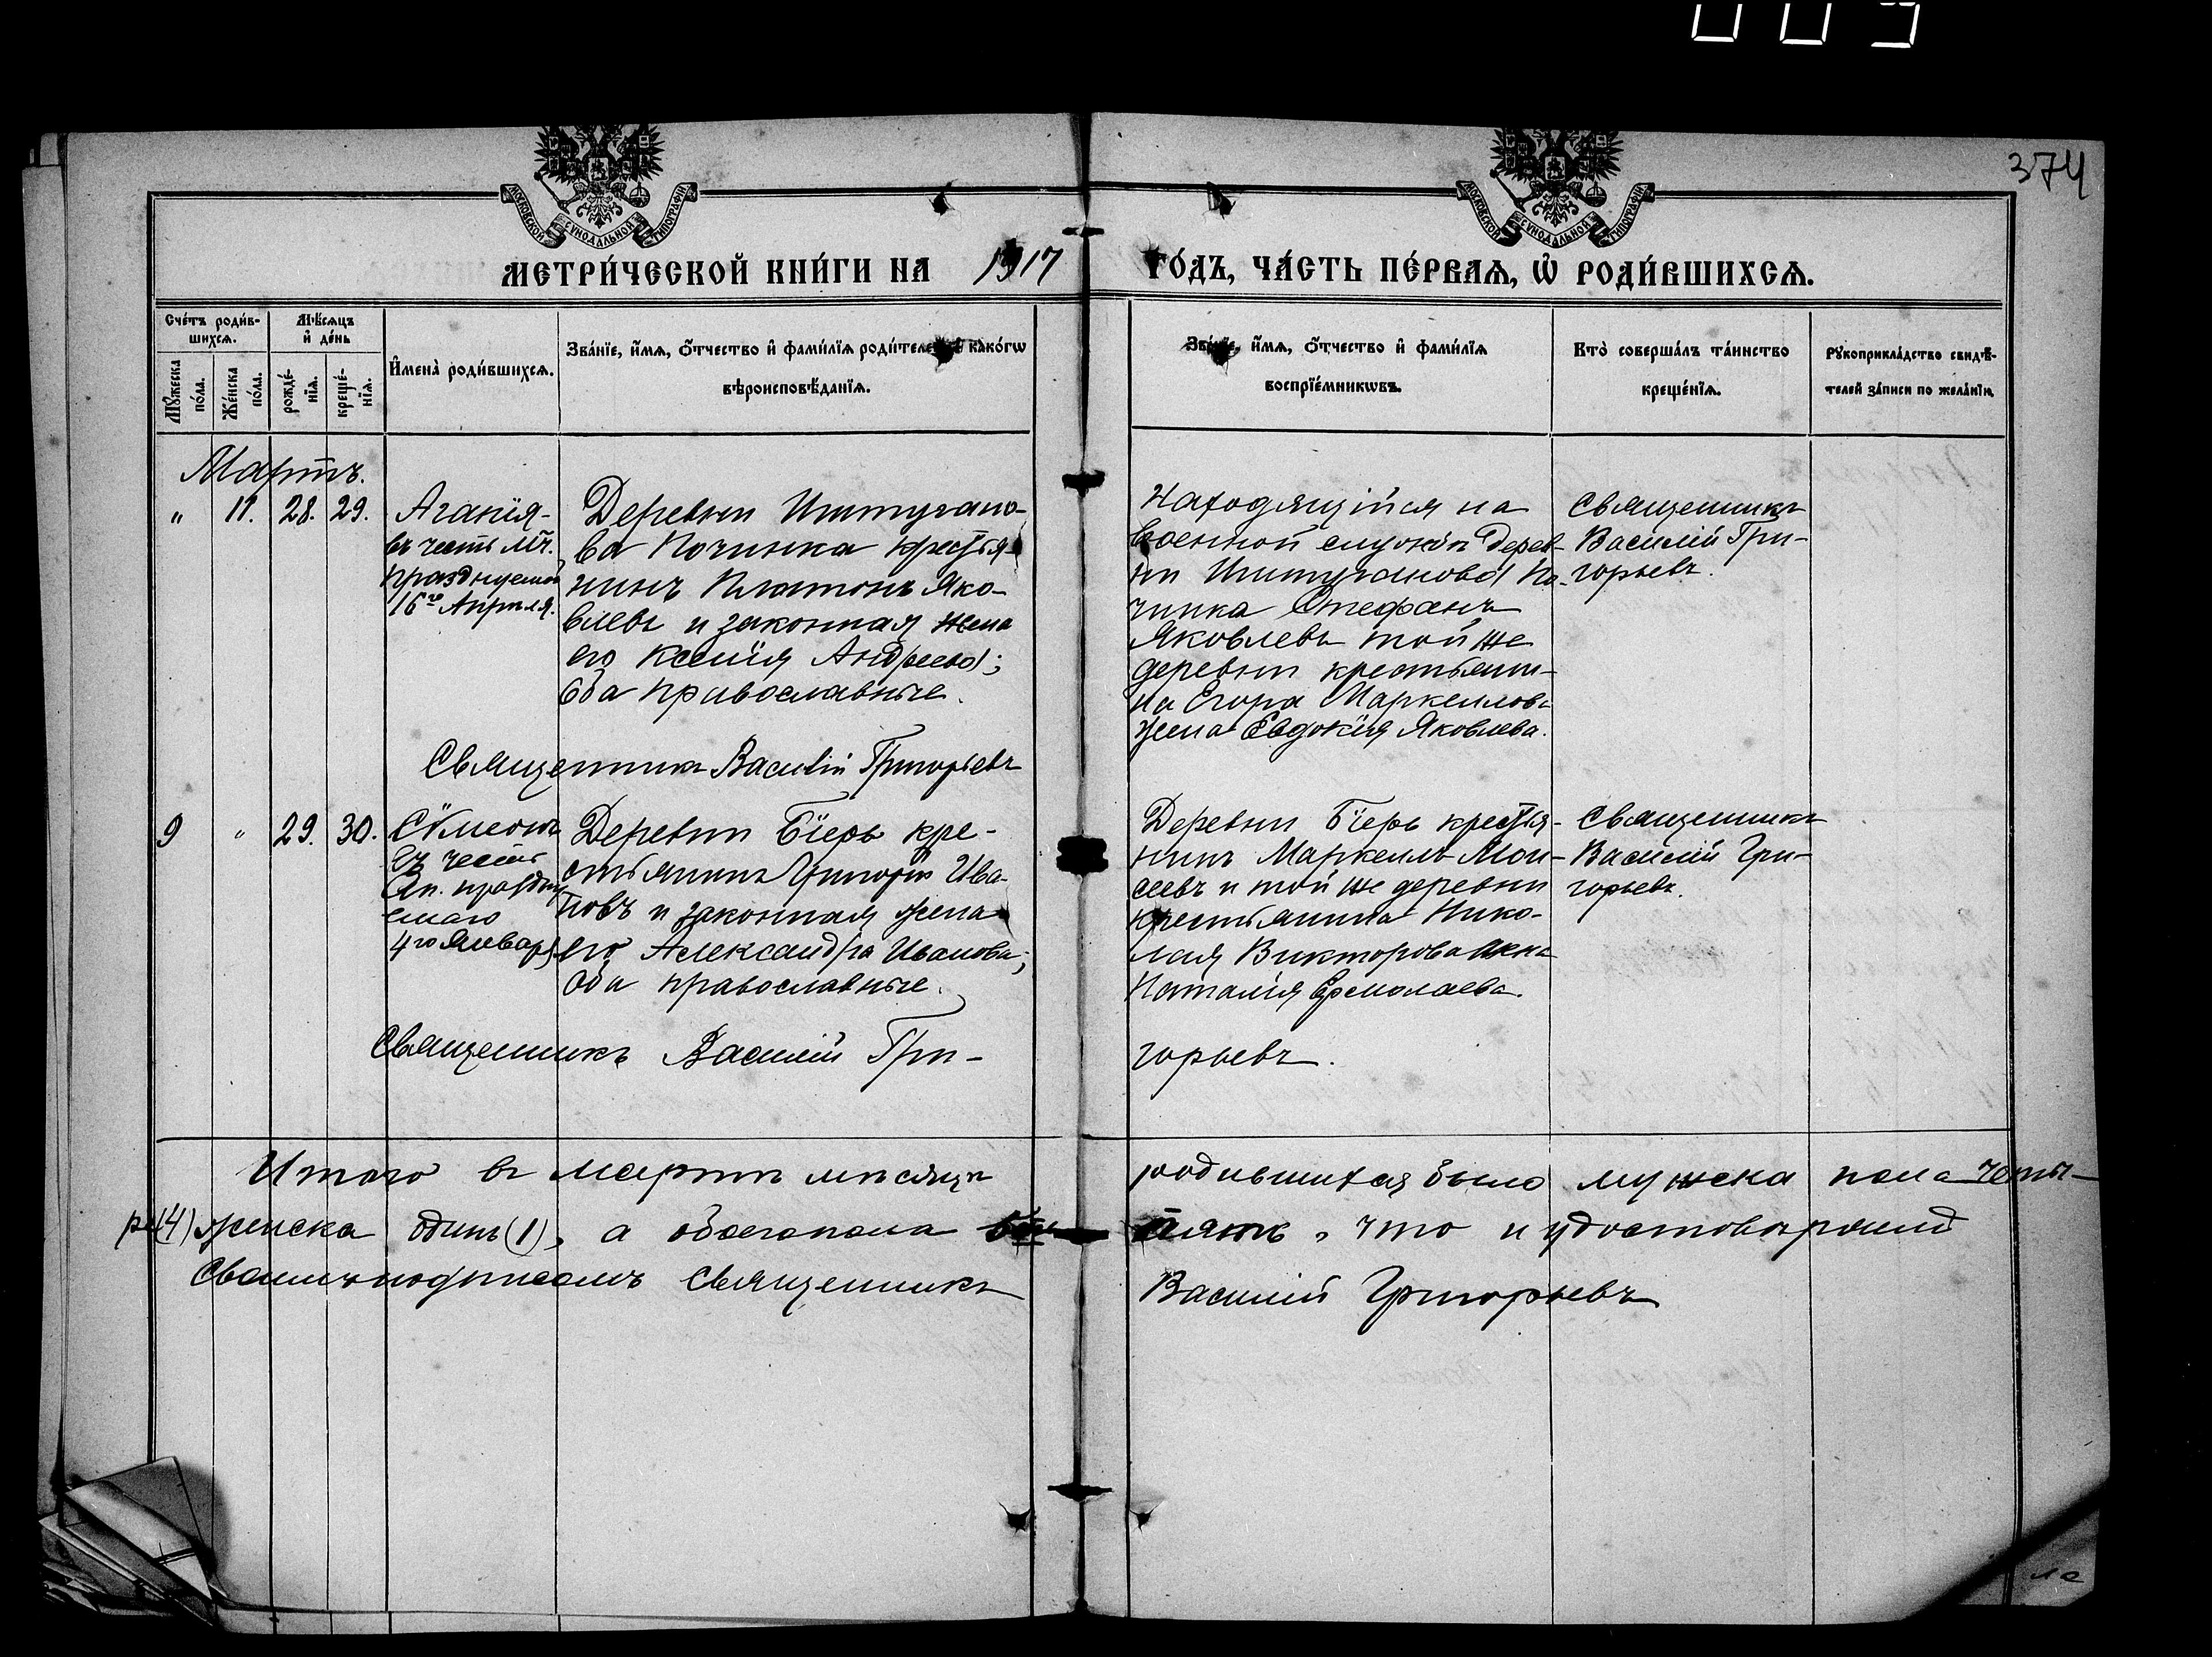 374
МОСКОВСКОЙ СѴНОДАЛЬНОЙ ТИПОГРАФІИ
МОСКОВСКОЙ СѴНОДАЛЬНОЙ ТИПОГРАФІИ
МЕТРИ́ЧЕСКОЙ КНИ́ГИ НА 1917 ГО́ДЪ, ЧА́СТЬ ПЕ́РВАѦ, Ѽ РОДИ́ВШИХСѦ.
Сче́тъ роди́в-
шихсѧ.
Мꙋ́жеска
по́ла.
Же́нска
по́ла.
Мѣ́сѧцъ
и҆ де́нь
рожде́-
нїѧ.
креще́-
нїѧ.
И҆мена̀ роди́вшихсѧ.
Зва́нїе, и҆́мѧ, ѻ҆́тчество и҆ фами́лїѧ роди́теле
како́гѡ
вѣроисповѣ́данїѧ.
Зва́нїе, и҆́мѧ, ѻ҆́тчество и҆ фами́лїѧ
воспрїе́мникѡвъ.
Кто̀ соверша́лъ та́инство
креще́нїѧ.
Рꙋкоприкла́дство свидѣ́-
телей за́писи по жела́нїю.
Мартъ.
" 11. 28. 29.
Агапія-
въ честь мч.
празднуемой
16го Апрѣля.
Деревни Иштугано-
ва Починка крестья-
нинъ Платонъ Яко-
влевъ и законная жена
его Ксенія Андреева;
Оба православные.
Находящійся на
военной службѣ Дерев-
ни Иштуганова По-
чинка Стефанъ
Яковлевъ той же
деревни крестьяни-
на Егора Маркеллова
жена Евдокія Яковлева.
Священникъ
Василій Гри-
горьевъ.
Священникъ Василій Григорьевъ
9 " 29. 30.
Сѵмеонъ
въ честь
Ап. праздну
емаго
4го Января.
Деревни Біерь кре-
стьянинъ Григорій Ива-
новъ и законная жена
его Александра Иванова;
Оба православные.
Деревни Біерь крестья-
нинъ Маркеллъ Мои-
сеевъ и той же деревни
крестьянина Нико-
лая Викторова жена
Наталія Ермолаева.
Священникъ
Василій Гри-
горьевъ.
Священникъ Василій Гри-
горьевъ.
Итого въ мартѣ мѣсяцѣ родившихся было мужска пола четы-
ре(4) женска одинъ(1), а обоего пола пять, что и удостовѣряю
Своимъ подписомъ Священникъ Василій Григорьевъ